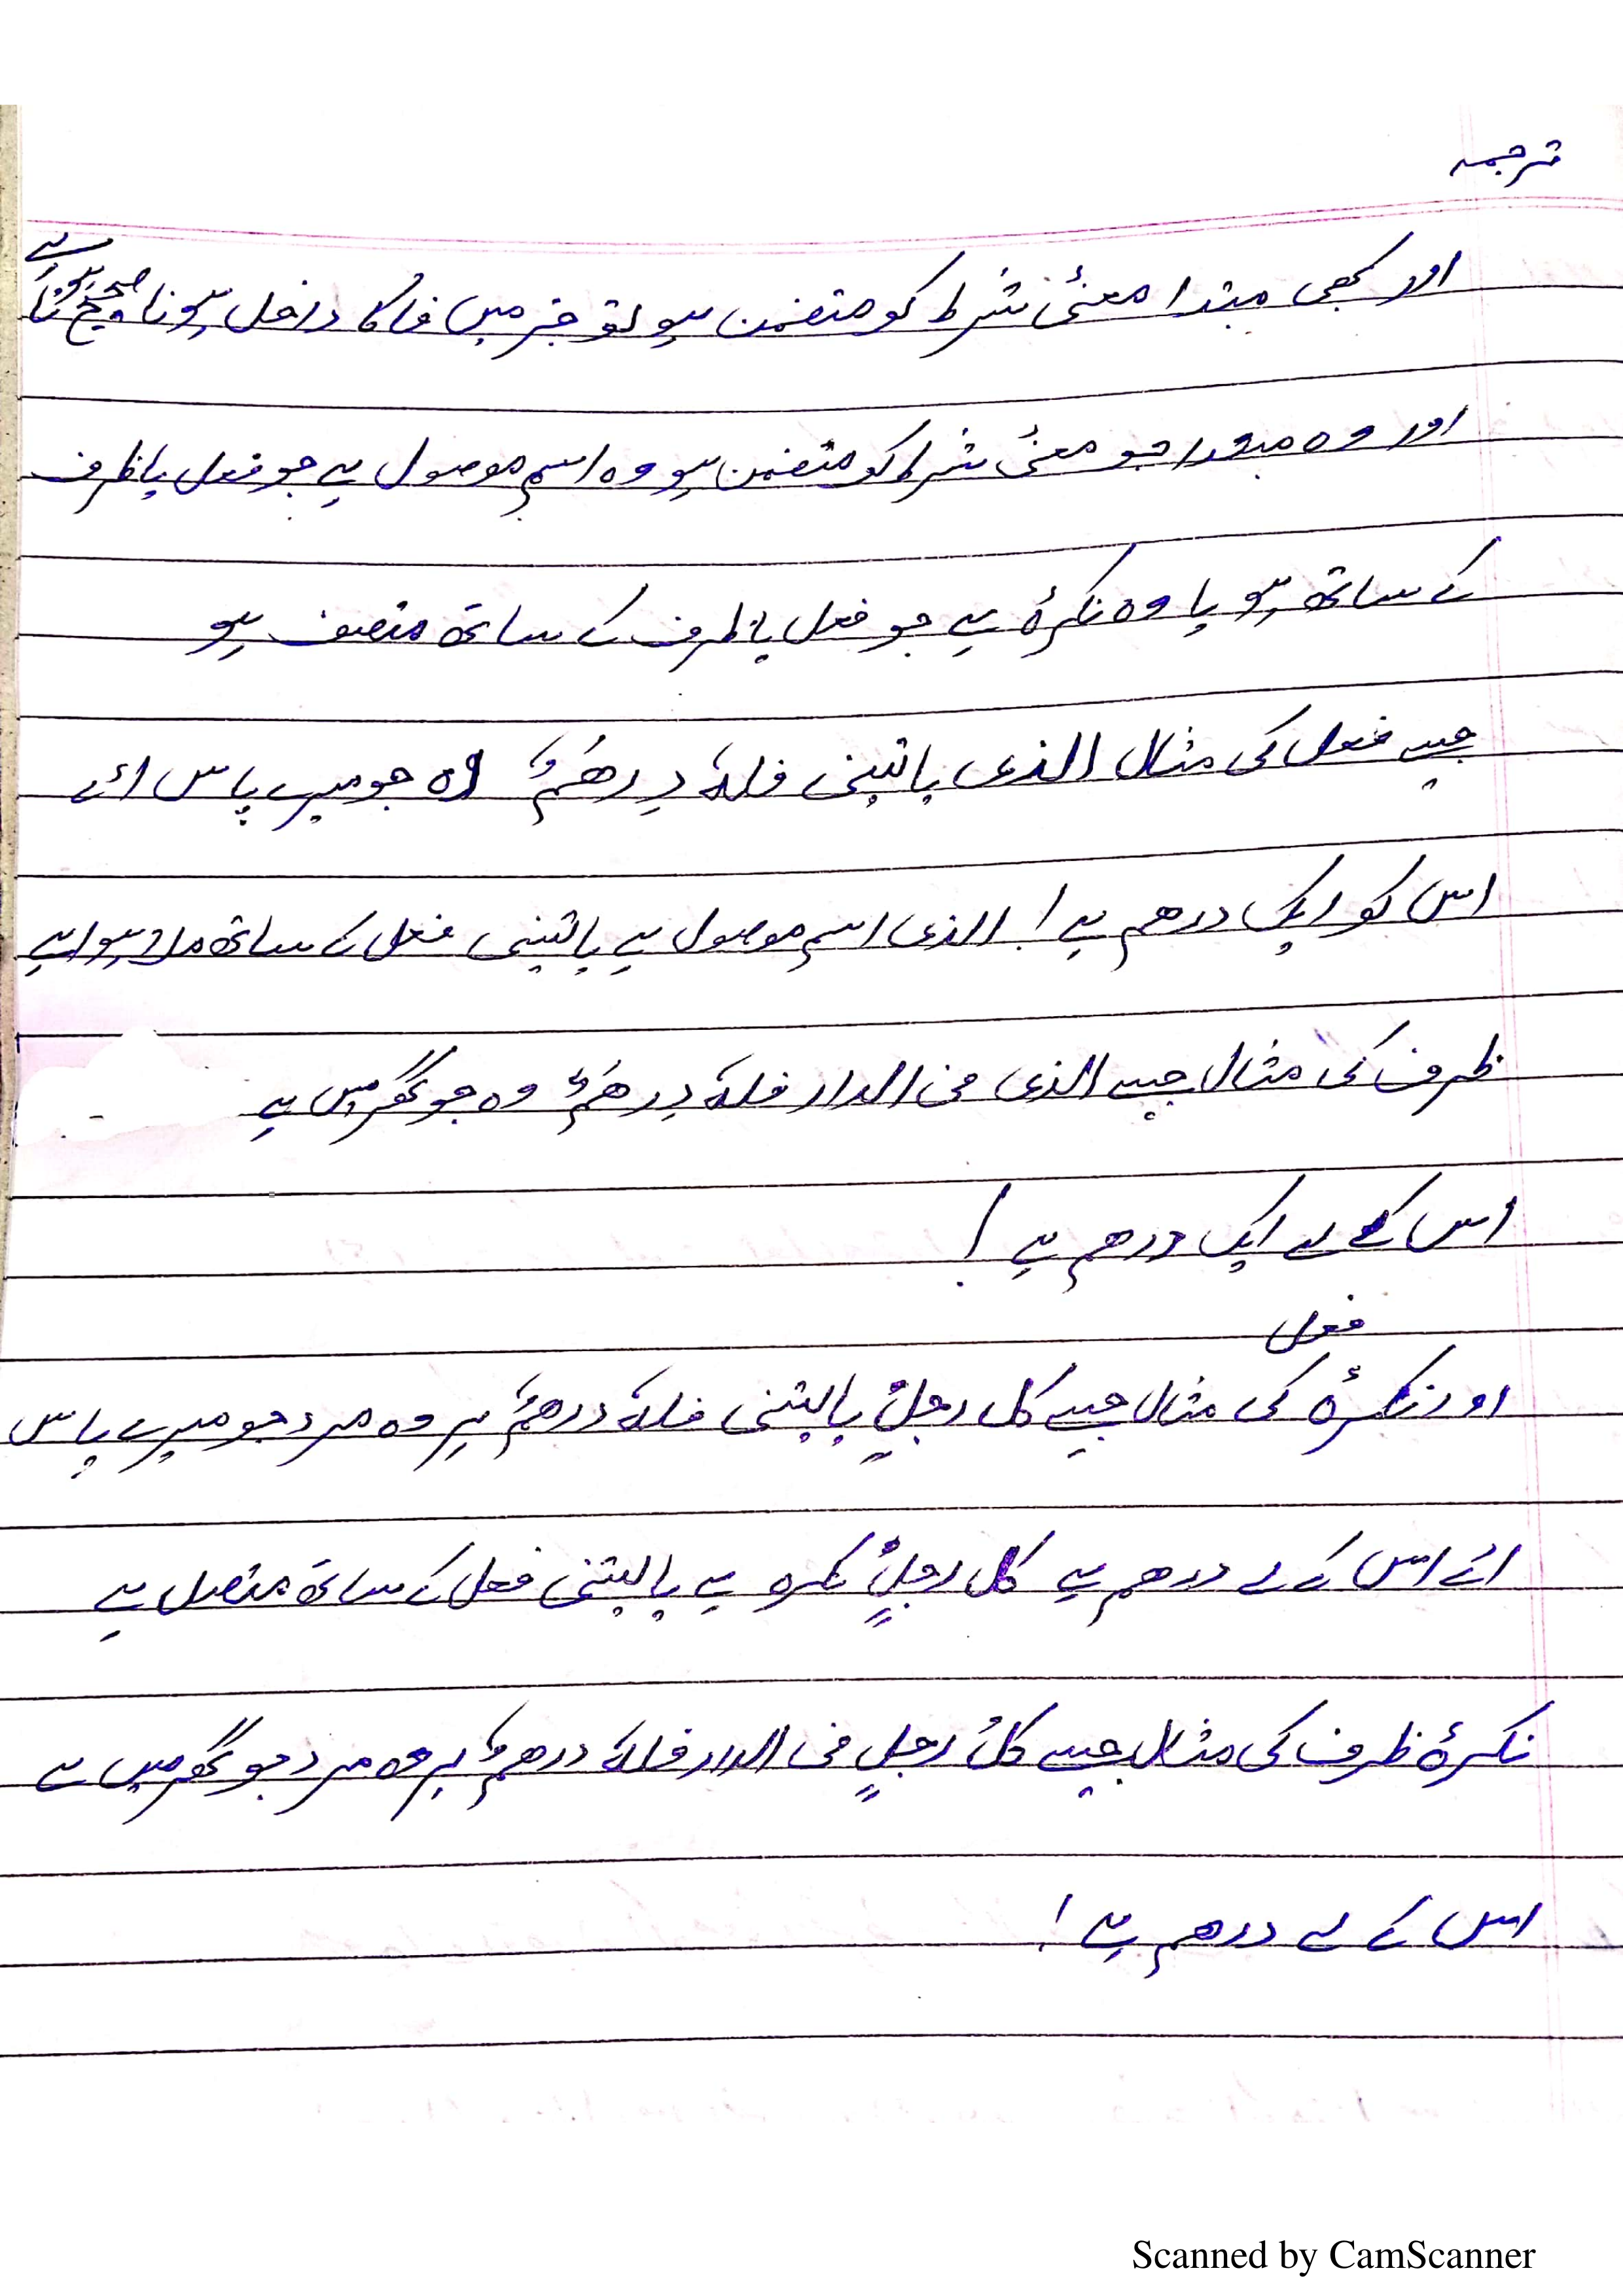 ترجمہ
اور کبھی مبتدا معنئ شرط کو متضمن ہو تو خبر میں فا کا داخل ہونا صحیح ہوتا ہے
اور وہ مبتدا جو معنئ شرط کو متضمن ہو وہ اسم موصول ہے جو فعل یا ظرف
کے ساتھ ہو یا وہ نکرۂ ہے جو فعل یا ظرف کے ساتھ متصف ہو
جیسے فعل کی مثال الذی یاتینی فلہٗ درھمٌ وہ جو میرے پاس ائے
اس کو ایک درھم ہے! الذی اسم موصول ہے یاتینی فعل کے ساتھ ملا ہوا ہے
ظرف کی مثال جیسے الذی فی الدار فلہٗ درھمٌ وہ جو گھر میں ہے
اس کے لے ایک درھم ہے!
فعل
اور نکرۂ کی مثال جیسے کل رجلٍ یاتینی فلہٗ درھمٌ ہر وہ مرد جو میرے پاس
ائے اس کے لے درھم ہے کل رجلٍ نکرہ ہے یاتینی فعل کے ساتھ متصل ہے
نکرۂ ظرف کی مثال جیسے کلُ رجلٍ فی الدار فلہٗ درھمٌ ہر وہ مرد جو گھر میں ہے
اس کے لے درھم ہے!
Scanned by CamScanner